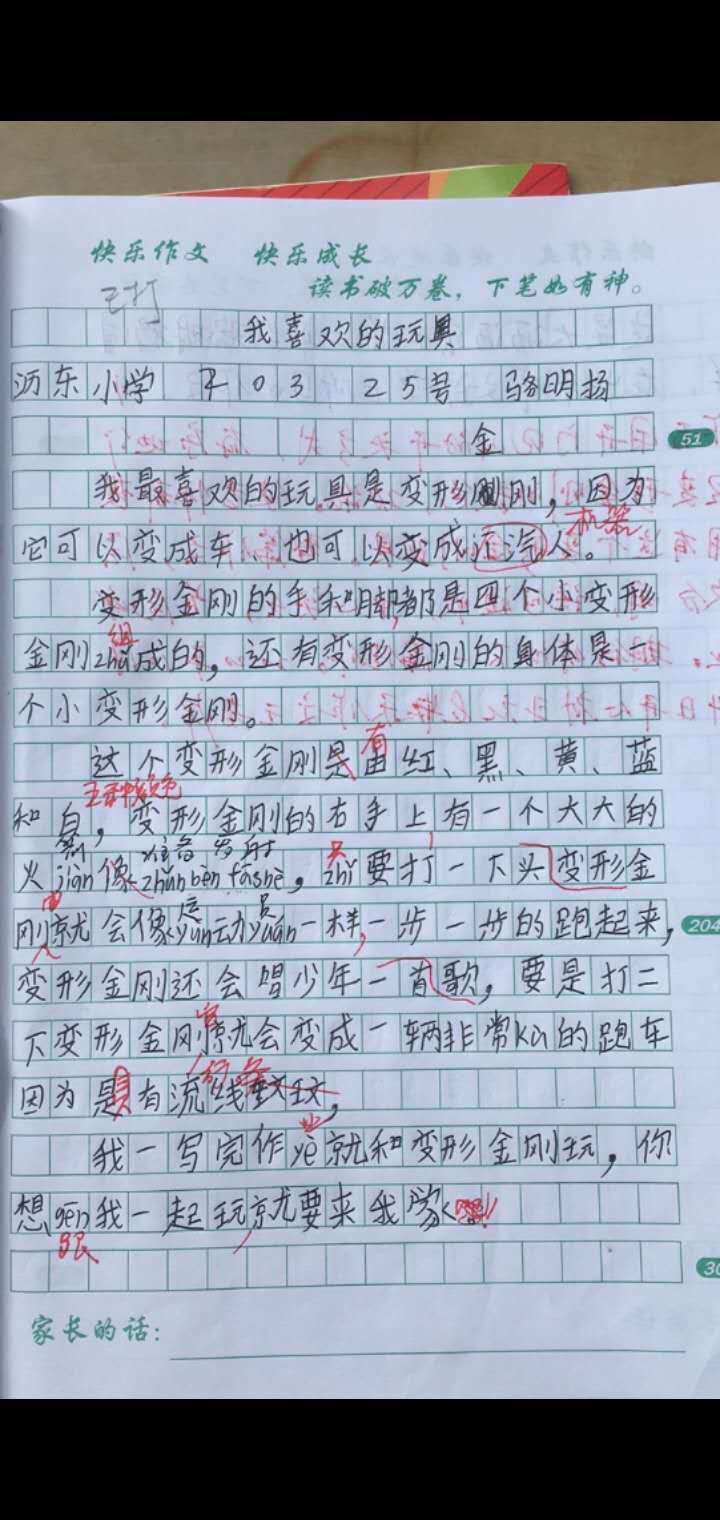 快乐作文 快乐成长
读书破万卷，下笔如有神。
已打
我喜欢的玩具
沥东小学 403 25号 骆明扬
金
51
我最喜欢的玩具是变形刚，因为
机器
它可以变成车、也可以变成汽人。
变形金刚的手和脚都是四个小变形
组
金刚zhǔ成的，还有变形金刚的身体是一
个小变形金刚。
有
这个变形金刚是由红、黑、黄、蓝
五种颜色
和白，变形金刚的右手上有一个大大的
箭 准备发射 只
火jiàn像zhǔnbèn fāshè，zhǐ要打一下头变形金
运 员
刚就会像yùn动yuán一样，一步一步的跑起来，
204
变形金刚还会唱少年一首歌，要是打二
下变形金刚就会变成一辆非常kù的跑车
因为是有流线
业
我一写完作yè就和变形金刚玩，你
想gēn我一起玩就要来我家
跟
家长的话：